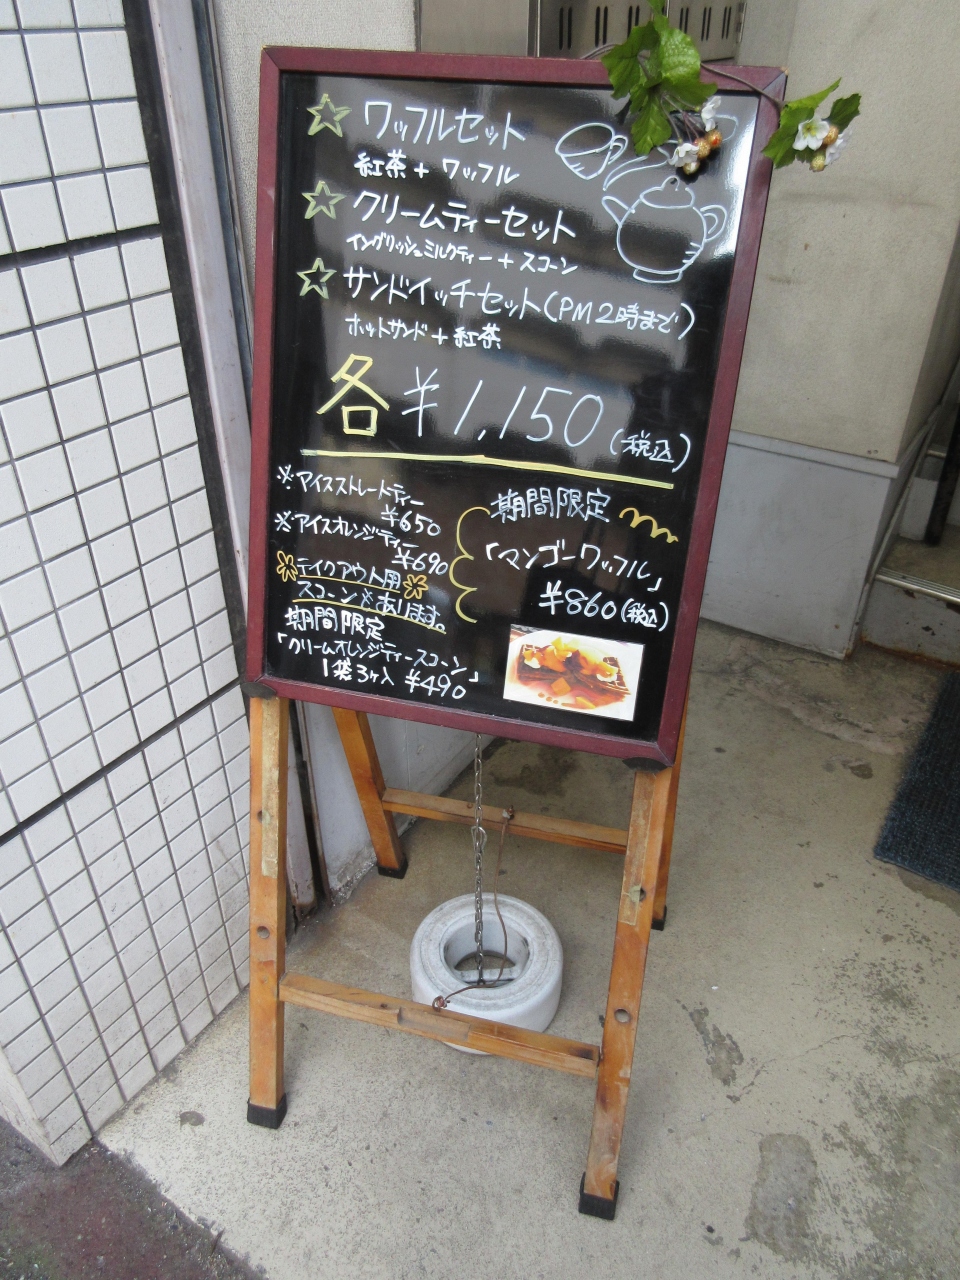 ☆ワッフルセット
紅茶+ワッフル
☆クリームティーセット
イングリッシュミルクティー+スコーン
☆サンドイッチセット(PM2時まで)
ホットサンド+紅茶
各¥1,150(税込)
※アイスストレートティー
¥650
※アイスオレンジティー
¥690
テイクアウト用
スコーンもあります。
期間限定
「クリームオレンジティースコーン」
1袋3ヶ入 ¥490
期間限定
「マンゴーワッフル」
¥860(税込)